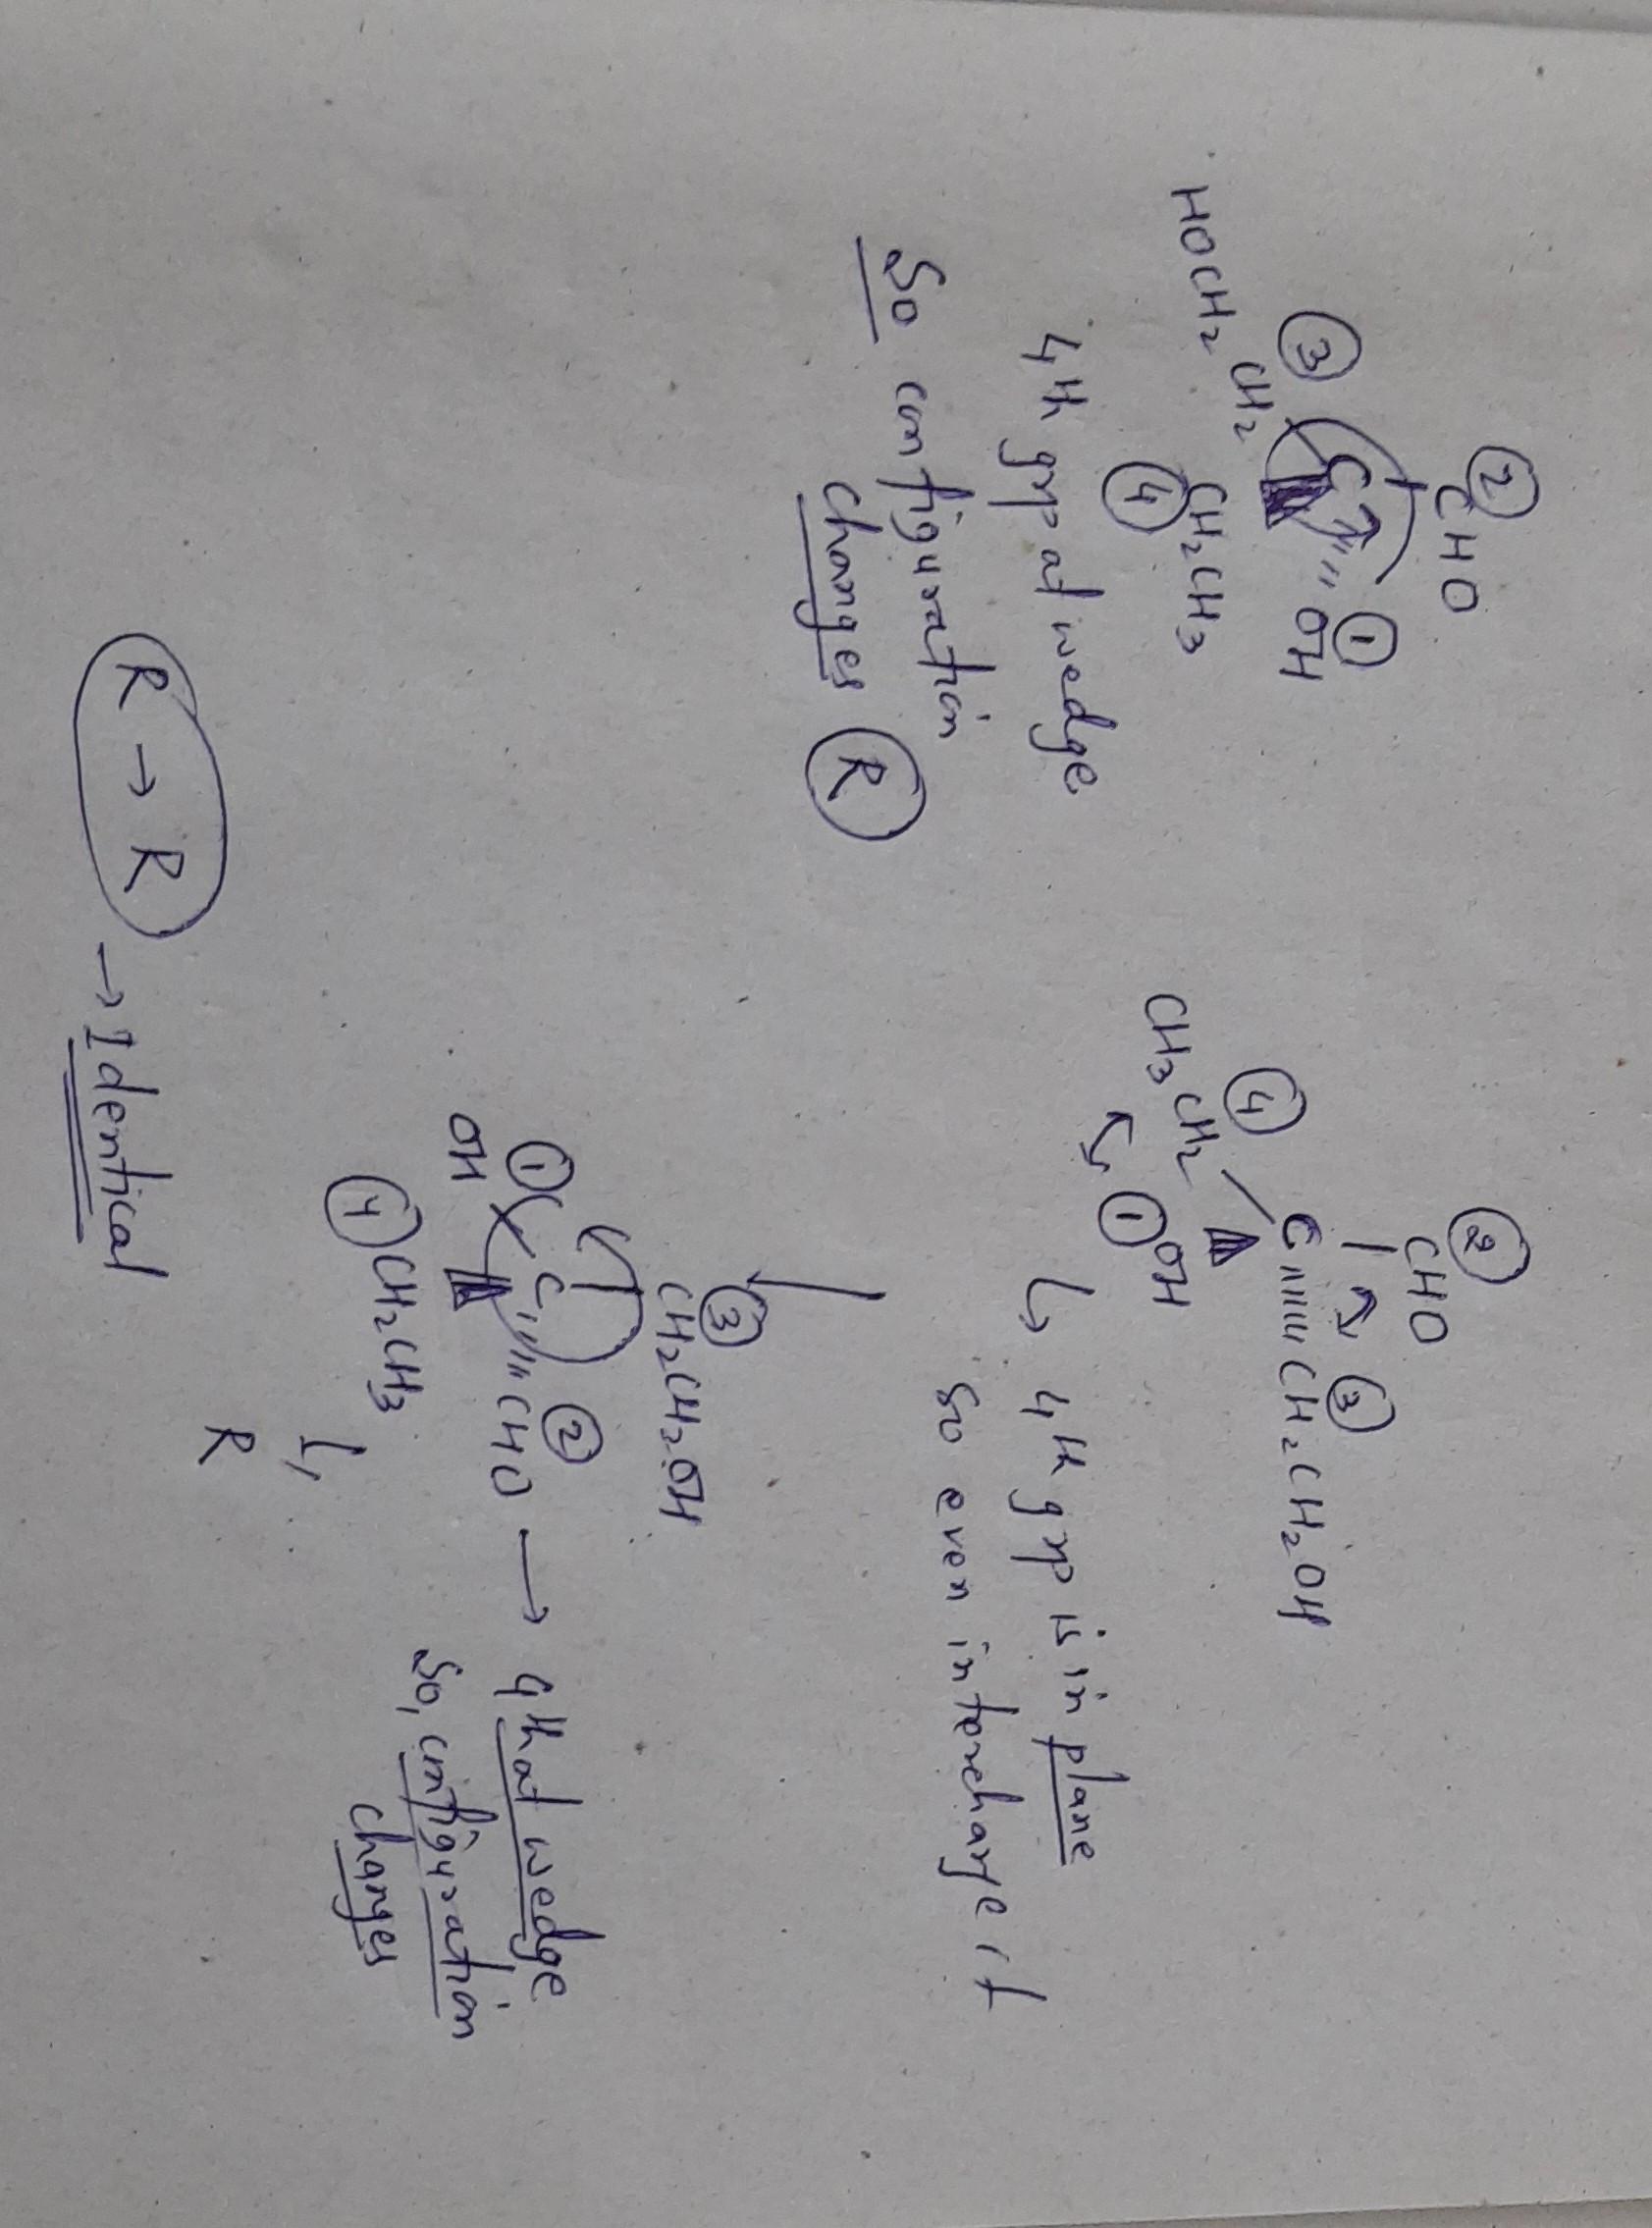 ② CHO
③ HOCH2CH2 C OH ①
④ CH2CH3
4th grp at wedge
So configuration
changes Ⓡ
② CHO
④ CH3CH2 C CH2CH2OH ③
① OH
↳ 4th grp is in plane
so even interchange it
③ CH2CH2OH
① OH C CHO ② → 4th at wedge
④ CH2CH3 So, configuration
changes
↳ R
R → R → Identical